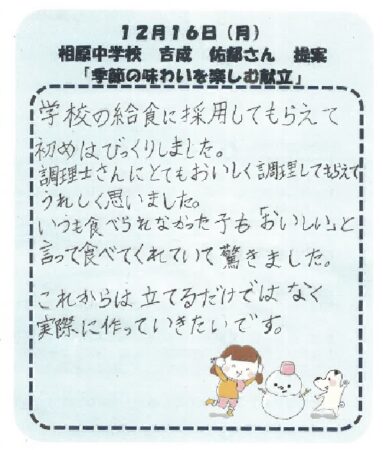 12月16日（月）
相原中学校　吉成　佑都さん　提案
「季節の味わいを楽しむ献立」
学校の給食に採用してもらえて
初めはびっくりしました。
調理士さんにとてもおいしく調理してもらえて
うれしく思いました。
いつも食べられなかった子も「おいしい」と
言って食べてくれていて驚きました。
これからは立てるだけではなく
実際に作っていきたいです。